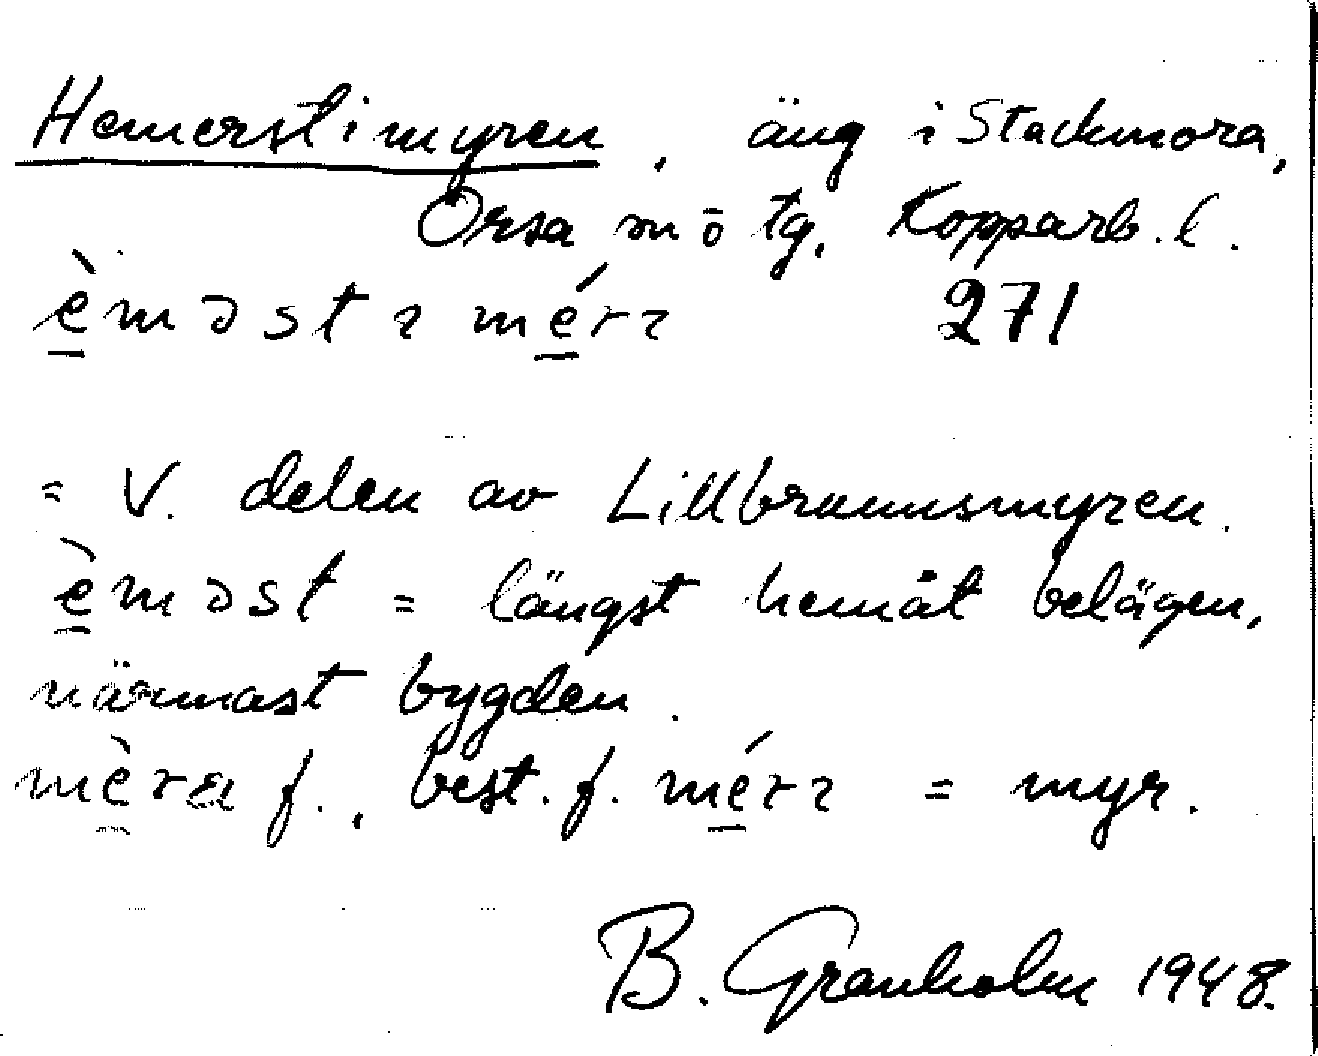 Hemerstimyren, äng i Stackmora,
Orsa sn o tg, Kopparb. l.
è̱məstɿ mé̱rɿ 271
= V. delen av Lillbrunnsmyren.
è̱məst = längst hemåt belägen,
närmast bygden.
mè̱ra f., best. f. mé̱rɿ = myr.
B. Granholm 1948.